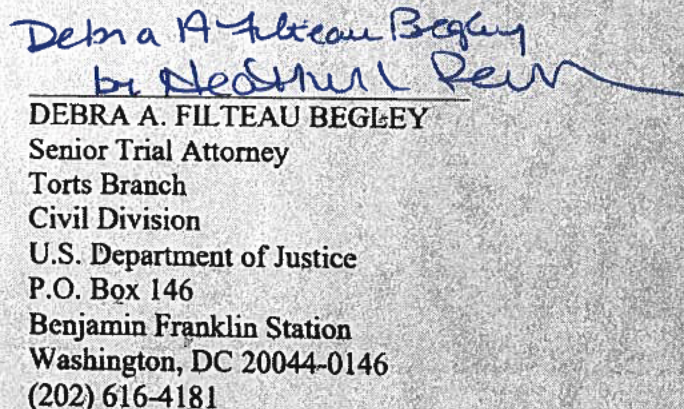 Debra A Filteau Begley
by Heather L
DEBRA A. FILTEAU BEGLEY
Senior Trial Attorney
Torts Branch
Civil Division
U.S. Department of Justice
P.O. Box 146
Benjamin Franklin Station
Washington, DC 20044-0146
(202) 616-4181